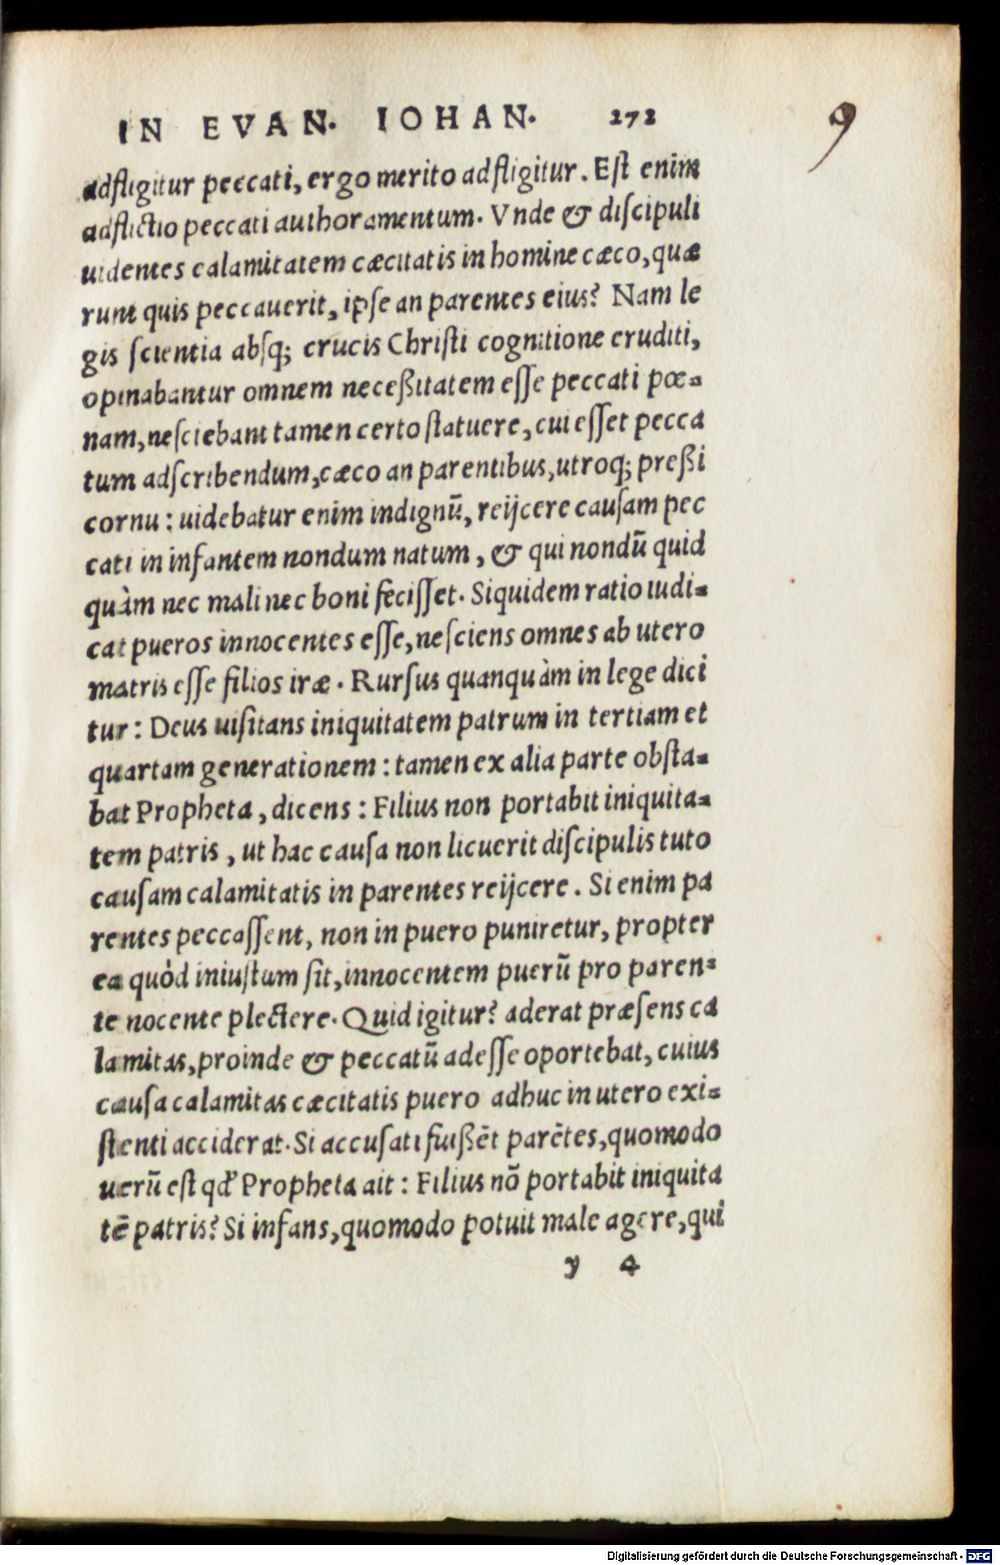 IN EVAN. IOHAN. 272
9
adfligitur peccati, ergo merito adfligitur. Est enim
adflictio peccati authoramentum. Vnde & discipuli
uidentes calamitatem cæcitatis in homine cæco, quæ
runt quis peccauerit, ipse an parentes eius? Nam le
gis scientia absq; crucis Christi cognitione eruditi,
opinabantur omnem neceßitatem esse peccati pœ-
nam, nesciebant tamen certo statuere, cui esset pecca
tum adscribendum, cæco an parentibus, utroq; preßi
cornu: uidebatur enim indignũ, reijcere causam pec
cati in infantem nondum natum, & qui nondũ quid
quàm nec mali nec boni fecisset. Siquidem ratio iudi-
cat pueros innocentes esse, nesciens omnes ab utero
matris esse filios iræ. Rursus quanquàm in lege dici
tur: Deus uisitans iniquitatem patrum in tertiam et
quartam generationem: tamen ex alia parte obsta-
bat Propheta, dicens: Filius non portabit iniquita-
tem patris, ut hac causa non licuerit discipulis tuto
causam calamitatis in parentes reijcere. Si enim pa
rentes peccassent, non in puero puniretur, propter
ea quòd iniustum sit, innocentem puerũ pro paren-
te nocente plectere. Quid igitur? aderat præsens ca
lamitas, proinde & peccatũ adesse oportebat, cuius
causa calamitas cæcitatis puero adhuc in utero exi-
stenti acciderat. Si accusati fuißẽt parẽtes, quomodo
uerũ est qđ Propheta ait: Filius nõ portabit iniquita
tẽ patris? Si infans, quomodo potuit male agere, qui
y 4
Digitalisierung gefördert durch die Deutsche Forschungsgemeinschaft - DFG